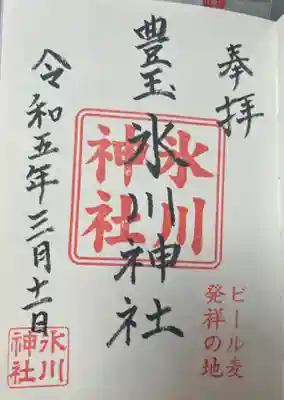 奉拝
豊玉氷川神社
氷川神社
ビール麦
発祥の地
令和五年三月十一日
氷川神社